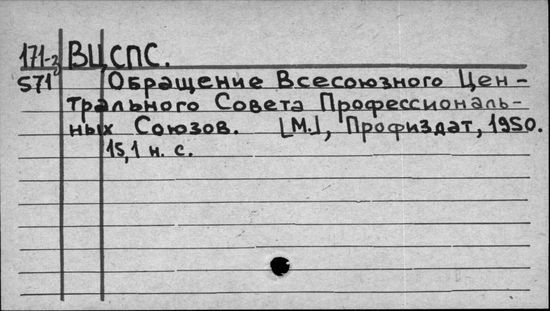 171-3 ВЦСПС.
571 Обращение Всесоюзного Цен-
трального Совета Профессиональ-
ных Союзов. [М.], Профиздат, 1950.
15,1 н. с.